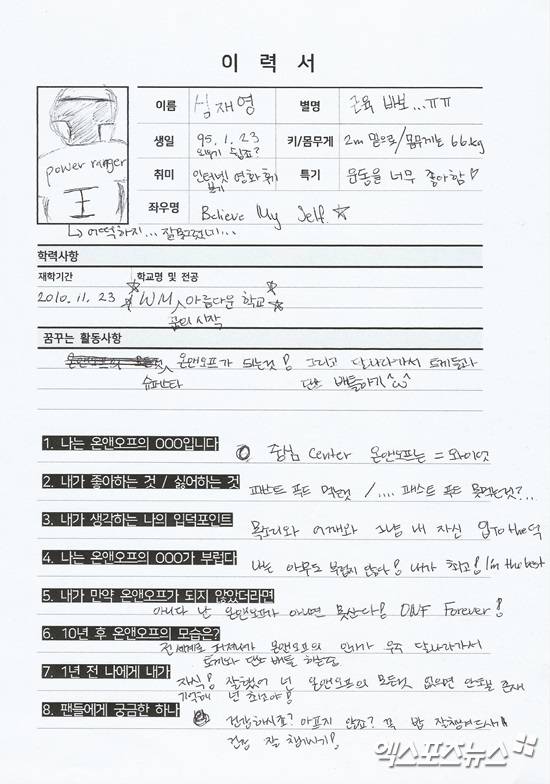 이 력 서
이름 심재영 별명 근육 바보...ㅠㅠ
power ranger
王
생일 95. 1. 23 외우기 쉽죠? 키/몸무게 2m 밑으로/몸무게는 66kg
취미 인터넷 영화 후기 보기 특기 운동을 너무 좋아함♡
좌우명 Believe My Self. ☆
↳ 어떡하지... 잘못그렸네...
학력사항
재학기간 학교명 및 전공
2010. 11. 23 ☆WM 아름다운 학교☆
꿈의 시작
꿈꾸는 활동사항
온앤오프가 되는것! 그리고 달나라가서 토끼들과
슈퍼스타 댄스 배틀하기^ω^
1. 나는 온앤오프의 OOO입니다 중심 center 온앤오프는 = 와이엇
2. 내가 좋아하는 것 / 싫어하는 것 패스트 푸드 먹는것 /.... 패스트 푸드 못먹는것?..
3. 내가 생각하는 나의 입덕포인트 목소리와 어깨와 그냥 내 자신 입 To the 덕
4. 나는 온앤오프의 OOO가 부럽다 나는 아무도 부럽지 않다! 내가 최고! I'm the best
5. 내가 만약 온앤오프가 되지 않았더라면
아니다 난 온앤오프가 아니면 못산다! ONF Forever!
6. 10년 후 온앤오프의 모습은?
전세계로 퍼져나가 온앤오프의 우주 달나라가서
토끼와 댄스 배틀 하는것
7. 1년 전 나에게 내가
자식! 잘했어 넌 온앤오프의 모든것 없으면 안돼는 존재
기억해 넌 최고야!
8. 팬들에게 궁금한 하나
건강하시죠? 아프지 않죠? 꼭 밥 잘챙겨드시고
건강 잘 챙기기!
엑스포츠뉴스